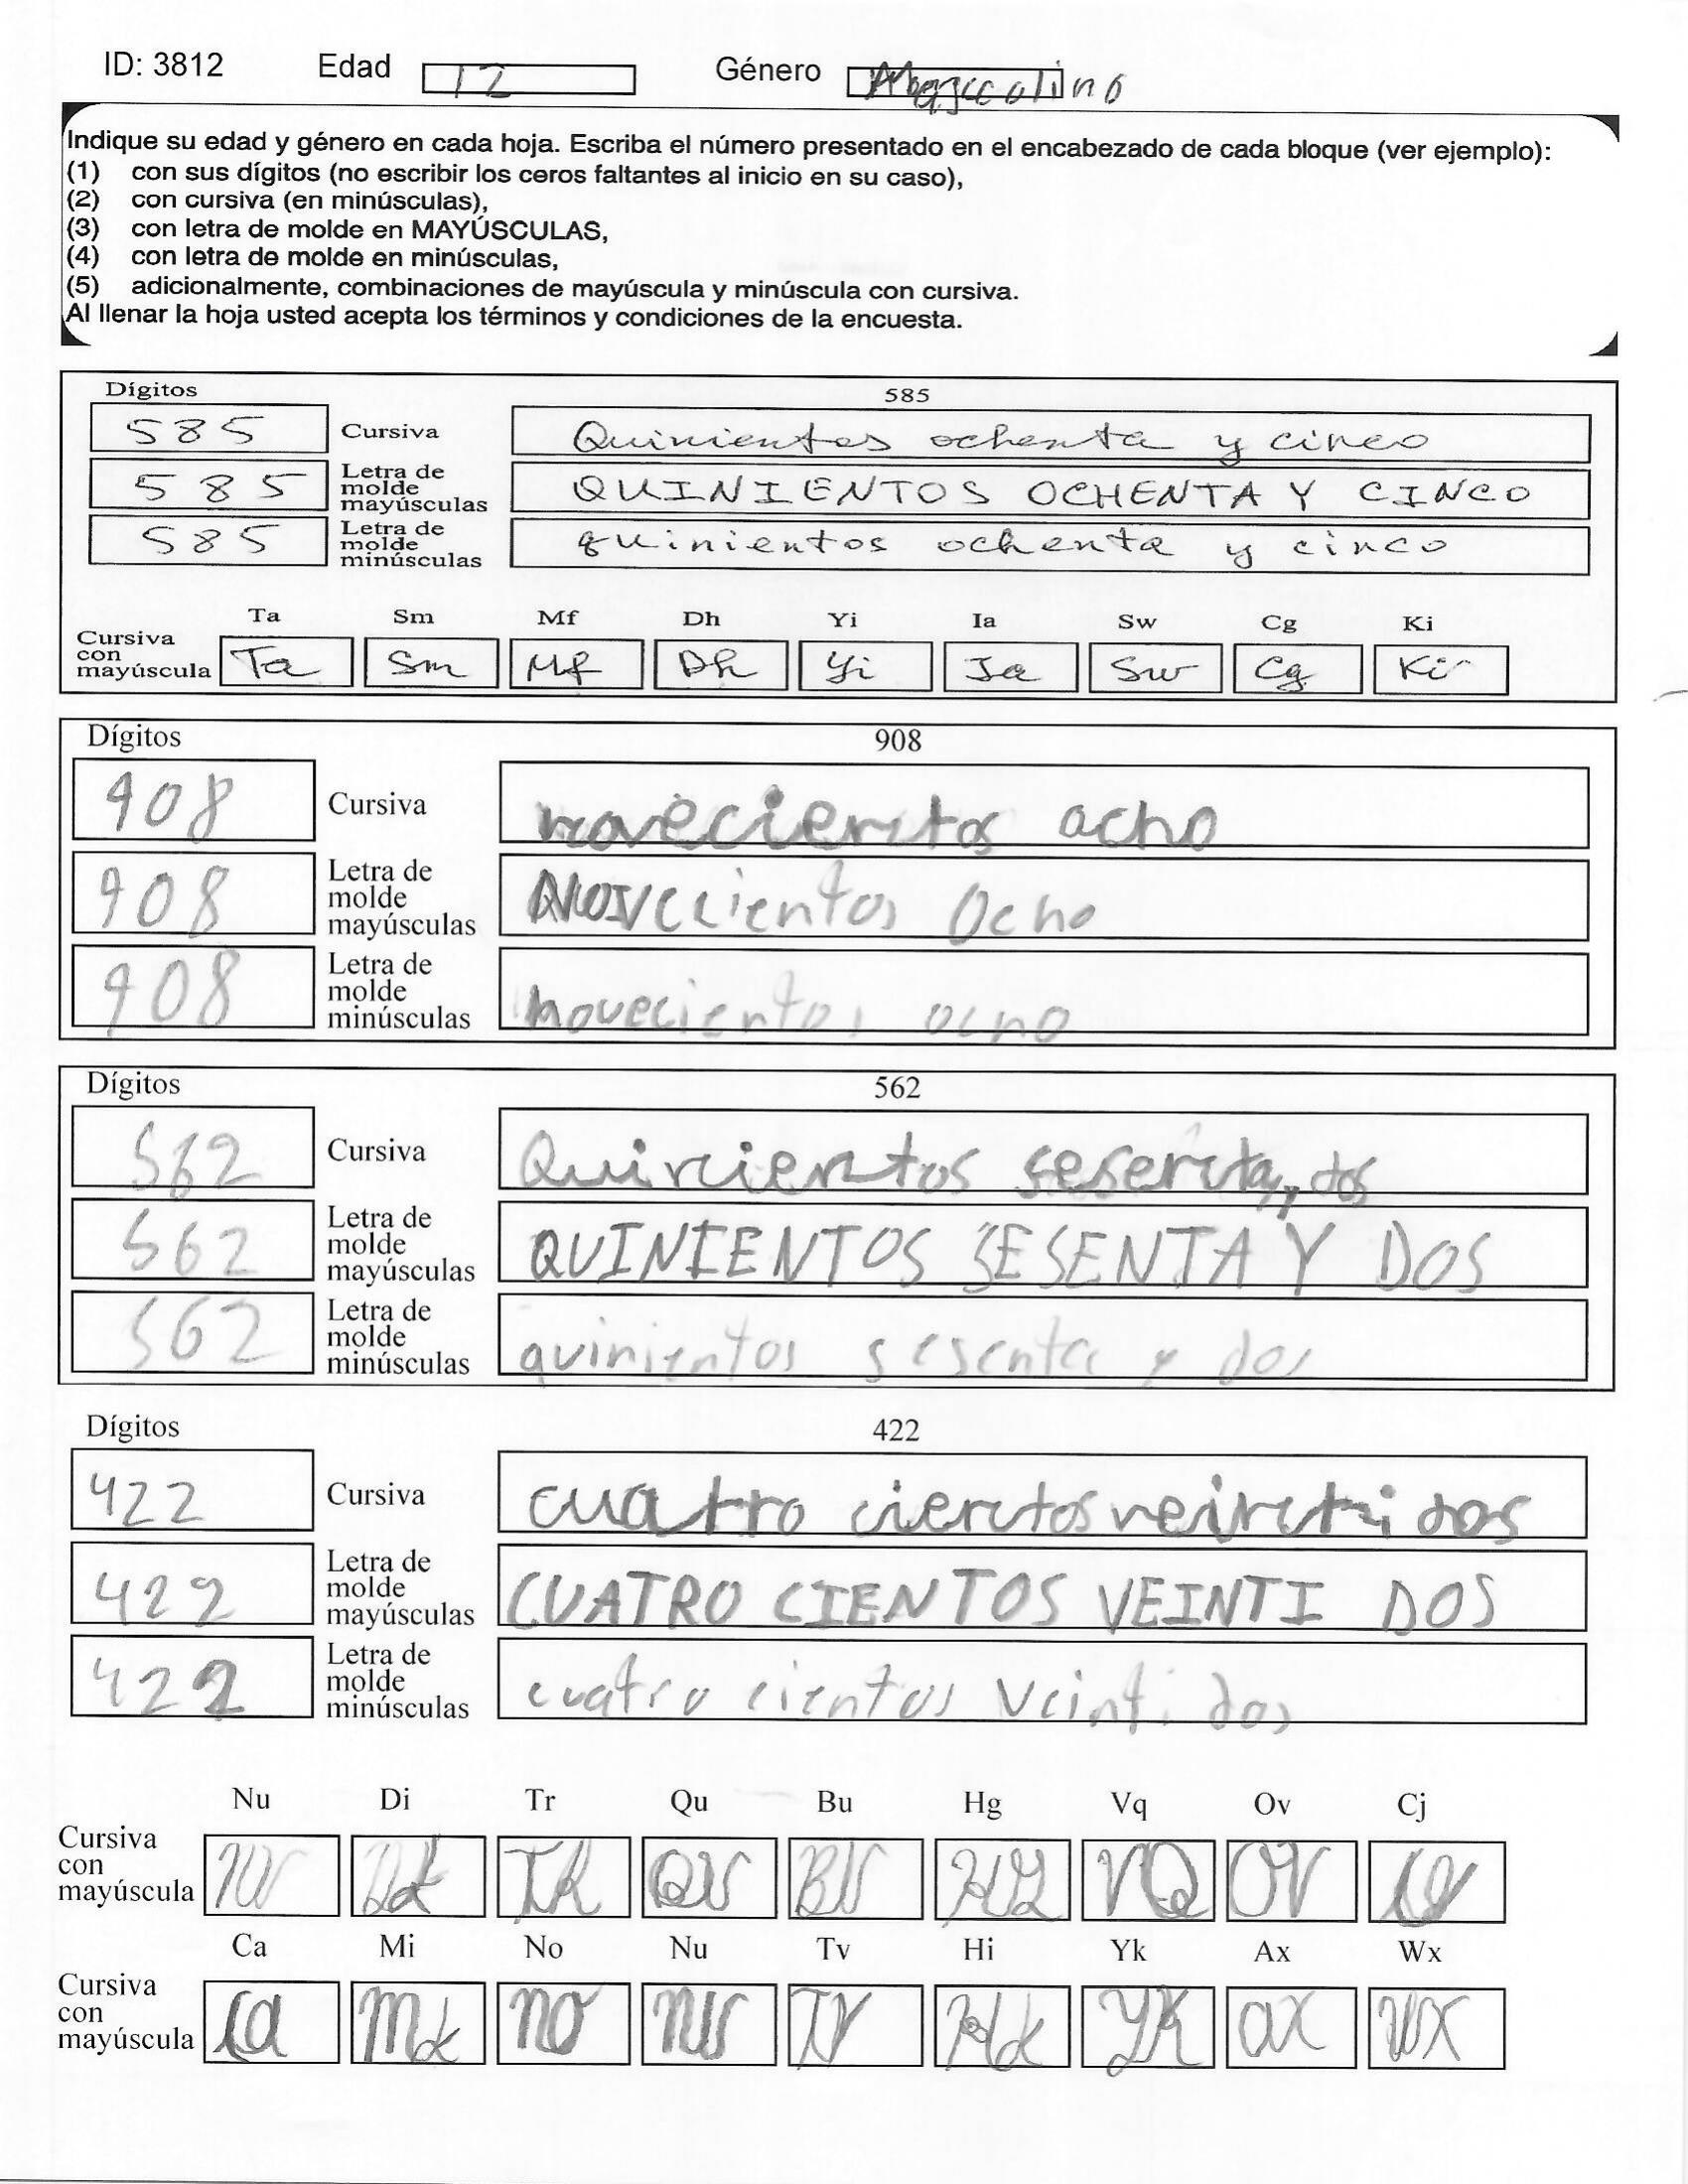 ID: 3812 Edad 12 Género Masculino
Indique su edad y género en cada hoja. Escriba el número presentado en el encabezado de cada bloque (ver ejemplo):
(1) con sus dígitos (no escribir los ceros faltantes al inicio en su caso),
(2) con cursiva (en minúsculas),
(3) con letra de molde en MAYÚSCULAS,
(4) con letra de molde en minúsculas,
(5) adicionalmente, combinaciones de mayúscula y minúscula con cursiva.
Al llenar la hoja usted acepta los términos y condiciones de la encuesta.
Dígitos 585
585 Cursiva Quinientos ochenta y cinco
585 Letra de molde mayúsculas QUINIENTOS OCHENTA Y CINCO
585 Letra de molde minúsculas quinientos ochenta y cinco
Ta Sm Mf Dh Yi Ia Sw Cg Ki
Cursiva con mayúscula Ta Sm Mf Dh Yi Ia Sw Cg Ki
Dígitos 908
908 Cursiva novecientos ocho
908 Letra de molde mayúsculas NOVecientos Ocho
908 Letra de molde minúsculas novecientos ocho
Dígitos 562
562 Cursiva Quinientos sesenta y dos
562 Letra de molde mayúsculas QUINIENTOS SESENTA Y DOS
562 Letra de molde minúsculas quinientos sesenta y dos
Dígitos 422
422 Cursiva cuatro cientos veinti dos
422 Letra de molde mayúsculas CUATRO CIENTOS VEINTI DOS
422 Letra de molde minúsculas cuatro cientos veinti dos
Nu Di Tr Qu Bu Hg Vq Ov Cj
Cursiva con mayúscula NU TR QU BU HG VQ OV
Ca Mi No Nu Tv Hi Yk Ax Wx
Cursiva con mayúscula Ca Mi NO NU TV Hi YK ax WX